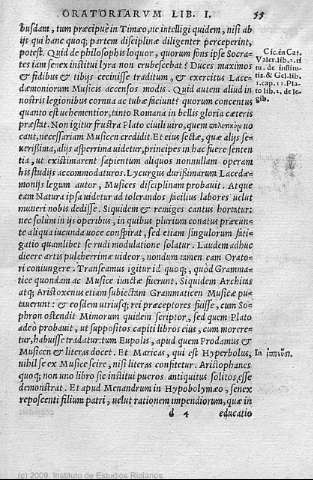 ORATORIARVM LIB. I. 55
busdam, tum præcipuè in Timæo, ne intelligi quidem, nisi ab
ijs qui hanc quoq; partem disciplinæ diligenter perceperint,
potest. Quid de philosophis loquor, quorum fons ipse Socra-
tes iam senex institui lyra non erubescebat? Duces maximos
& fidibus & tibijs cecinisse traditum, & exercitus Lace-
dæmoniorum Musicis accensos modis. Quid autem aliud in
nostris legionibus cornua ac tubæ faciunt? quorum concentus
quanto est uehementior, tanto Romana in bellis gloria cæteris
præstat. Non igitur frustra Plato ciuili uiro, quem
cant, necessariam Musicen credidit. Et eius sectæ, quæ alijs se-
uerissima, alijs asperrima uidetur, principes in hac fuere senten
tia, ut existimarent sapientium aliquos nonnullam operam
his studijs accommodaturos. Lycurgus durissimarum Lacedæ
monijs legum autor, Musices disciplinam probauit. Atque
eam Natura ipsa uidetur ad tolerandos facilius labores uelut
muneri nobis dedisse. Siquidem & remiges cantus hortatur:
nec solum in ijs operibus, in quibus plurium conatus præeun-
te aliqua iucunda uoce conspirat, sed etiam singulorum fati-
gatio quamlibet se rudi modulatione solatur. Laudem adhuc
dicere artis pulcherrimæ uideor, nondum tamen eam Orato-
ri coniungere. Transeamus igitur id quoq; quod Gramma-
tice quondam ac Musice iunctæ fuerunt. Siquidem Archias
atq; Aristoxenus etiam subiectam Grammaticen Musicæ pu-
tauerunt: & eosdem utriusq; rei præceptores fuisse, cum So-
phron ostendit Mimorum quidem scriptor, sed quem Plato
adeo probauit, ut suppositos capiti libros eius, cum morere-
tur, habuisse tradatur: tum Eupolis, apud quem Prodamus &
Musicen & literas docet. Et Maricas, qui est Hyperbolus,
nihil se ex Musice scire, nisi literas confitetur. Aristophanes
quoq; non uno libro sic institui pueros antiquitus solitos esse
demonstrat. Et apud Menandrum in Hypobolymæo, senex
reposcenti filium patri, uelut rationem impendiorum, quæ in
d 4 educatio
Cic. in Cat.
Valer. lib. 8. ti
tu. de institu-
tis & Gel. lib.
1. cap. 11. Pla-
to lib. 2. de le-
gib.
(c) 2009. Instituto de Estudios Riojanos